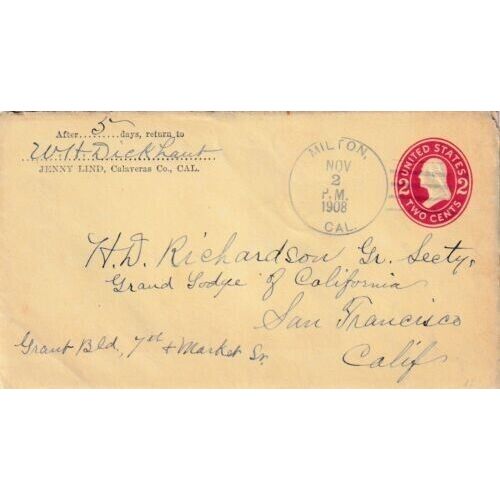 After 5 days, return to
W. H. Dickhaut
JENNY LIND, Calaveras Co., CAL.
MILTON,
NOV
2
P.M.
1908
CAL.
UNITED STATES
2 2
TWO CENTS
H. D. Richardson Gr. Secty,
Grand Lodge of California
San Francisco
Calif
Grant Bld, 7th & Market Sr.